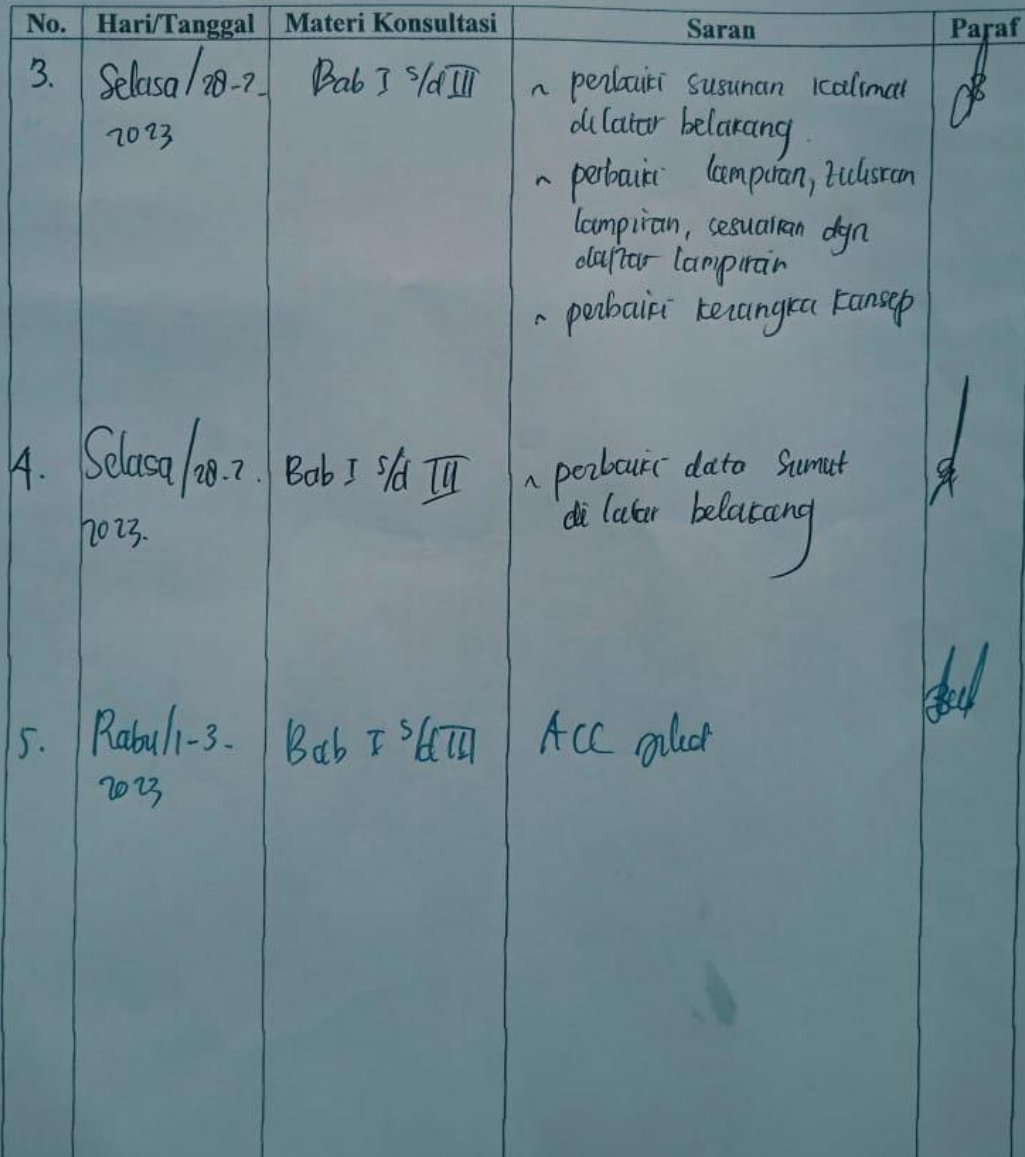 No. Hari/Tanggal Materi Konsultasi Saran Paraf
3. Selasa/28-2- Bab I s/d III ~ perbaiki susunan kalimat
2023 di latar belakang.
~ perbaiki lampiran, tuliskan
lampiran, sesuaikan dgn
daftar lampiran
~ perbaiki kerangka konsep
4. Selasa/28.2. Bab I s/d III ~ perbaiki data Sumut
2023. di latar belakang
5. Rabu/1-3- Bab I s/d III ACC
2023